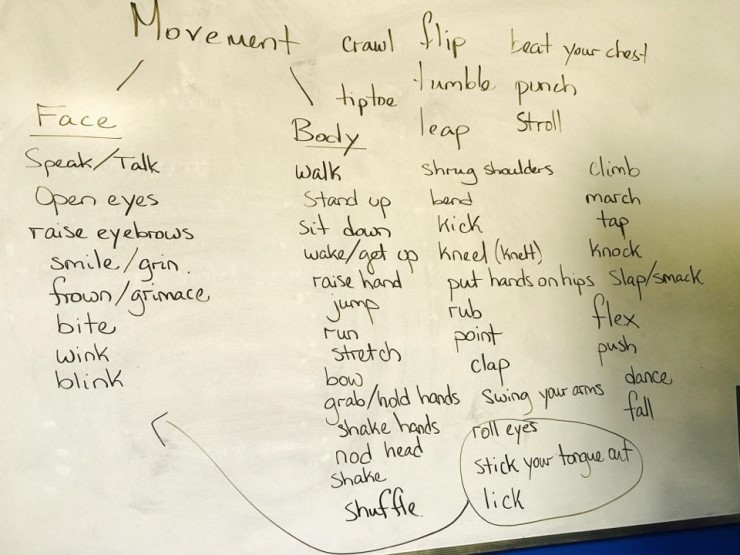 Movement
crawl flip beat your chest
tiptoe tumble punch
leap Stroll
Face
Speak/Talk
Open eyes
raise eyebrows
smile/grin.
frown/grimace
bite
wink
blink
Body
walk
Stand up
sit down
wake/get up
raise hand
jump
run
stretch
bow
grab/hold hands
shake hands
nod head
shake
shuffle
shrug shoulders
bend
kick
kneel (knelt)
put hands on hips
rub
point
clap
swing your arms
roll eyes
stick your tongue out
lick
climb
march
tap
knock
slap/smack
flex
push
dance
fall